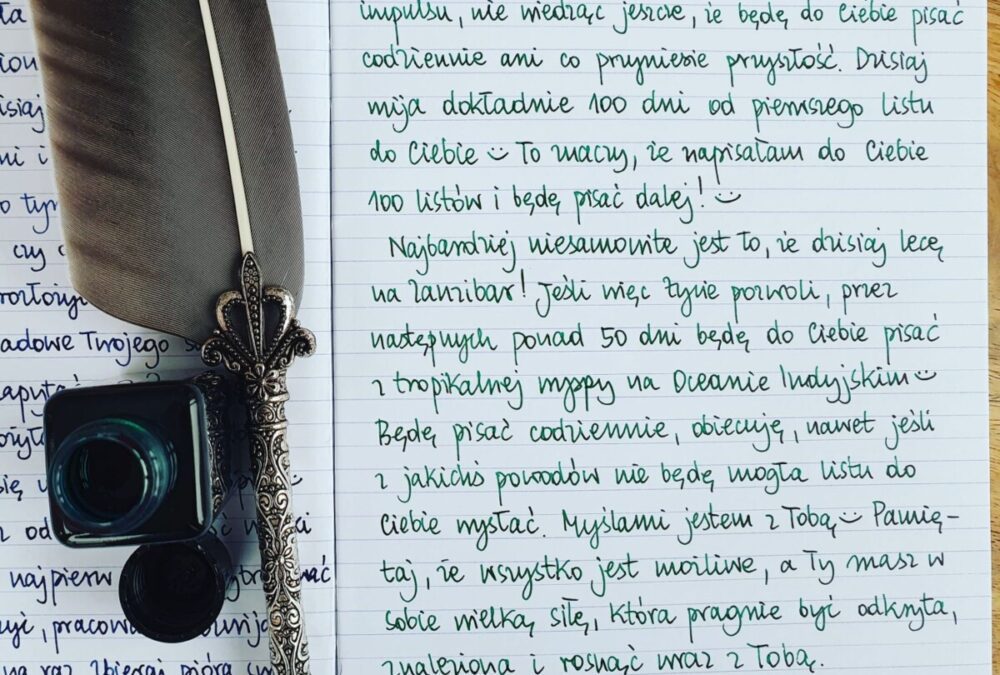 isiaj
czy
adowe Twojego
najpierw
impulsu, nie wiedząc jeszcze, że będę do Ciebie pisać
codziennie ani co przyniesie przyszłość. Dzisiaj
mija dokładnie 100 dni od pierwszego listu
do Ciebie :) To znaczy, że napisałam do Ciebie
100 listów i będę pisać dalej! :)
Najbardziej niesamowite jest to, że dzisiaj lecę
na Zanzibar! Jeśli więc życie pozwoli, przez
następnych ponad 50 dni będę do Ciebie pisać
z tropikalnej wyspy na Oceanie Indyjskim :)
Będę pisać codziennie, obiecuję, nawet jeśli
z jakichś powodów nie będę mogła listu do
Ciebie wysłać. Myślami jestem z Tobą :) Pamię-
taj, że wszystko jest możliwe, a Ty masz w
sobie wielką siłę, która pragnie być odkryta,
znaleziona i rosnąć wraz z Tobą.